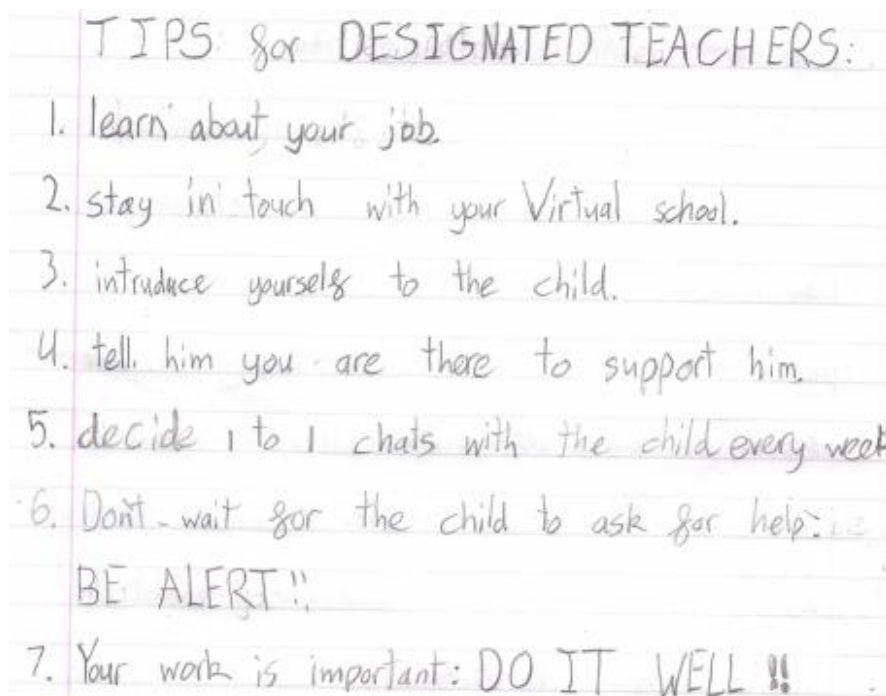 TIPS for DESIGNATED TEACHERS:
1. learn about your job.
2. stay in touch with your Virtual school.
3. intruduce yourself to the child.
4. tell him you are there to support him.
5. decide 1 to 1 chats with the child every week
6. Don't wait for the child to ask for help:
BE ALERT!!
7. Your work is important: DO IT WELL !!